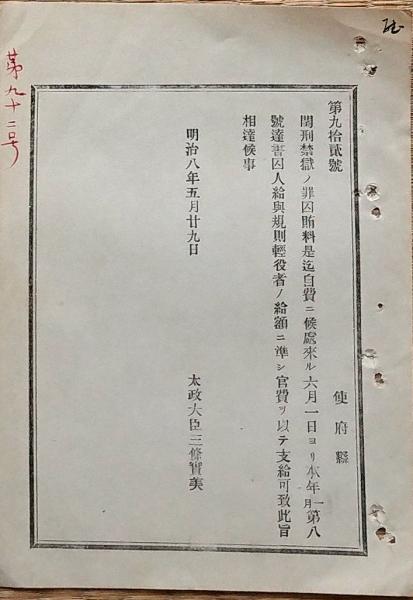 第九十二号
第九拾貳號
使府縣
閏刑禁獄ノ罪囚賄料是迄自費ニ候處來ル六月一日ヨリ本年一月第八
號達書囚人給與規則輕役者ノ給額ニ準シ官費ヲ以テ支給可致此旨
相達候事
明治八年五月廿九日
太政大臣三條實美